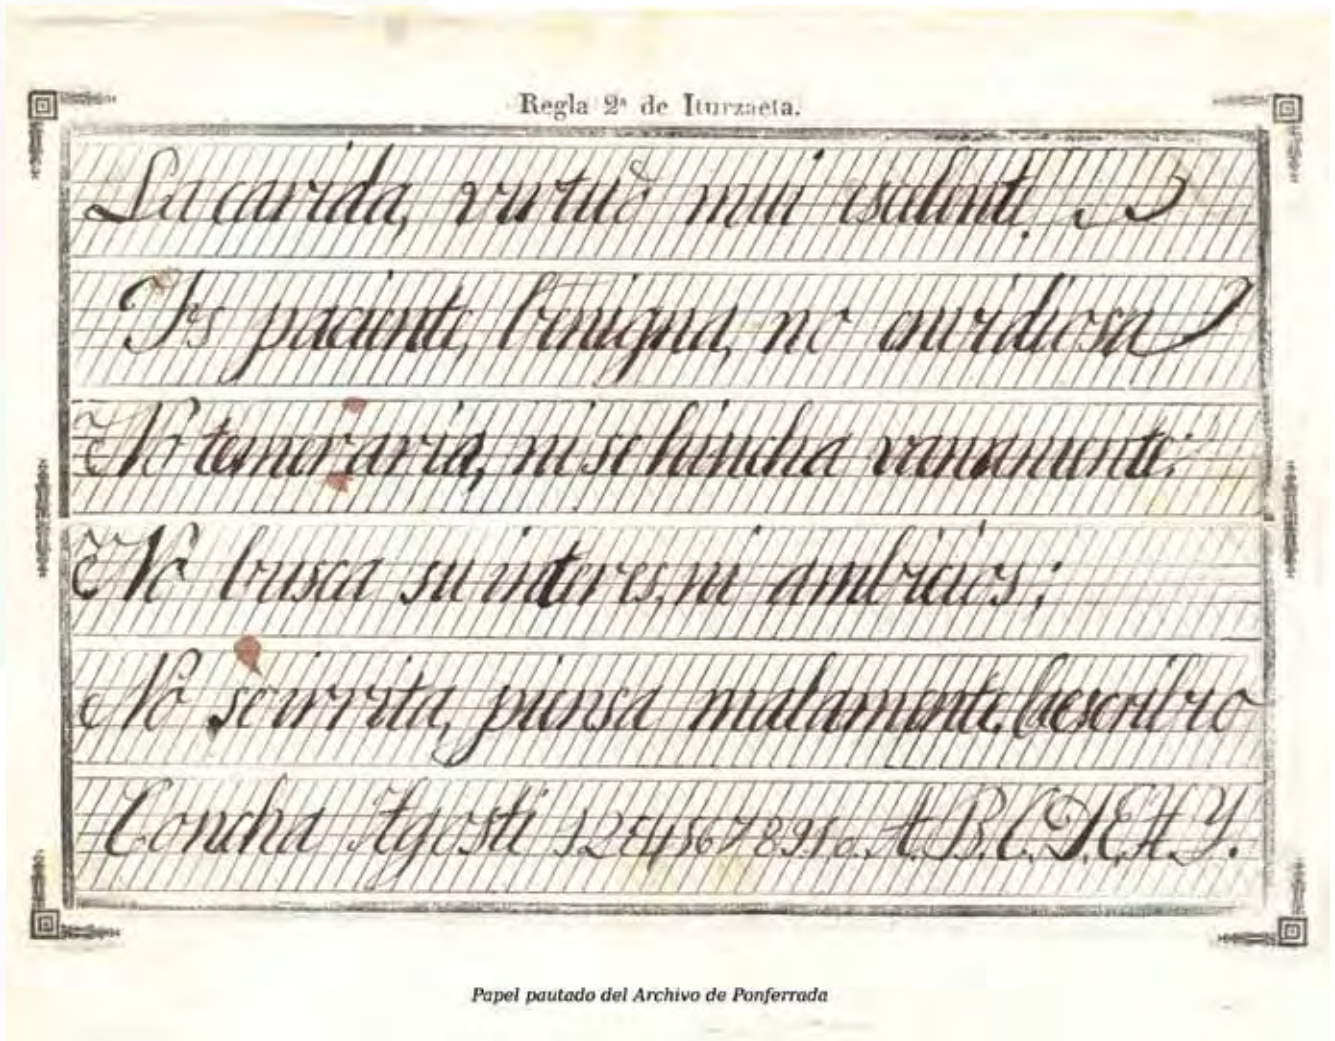 Regla 2ª de Iturzaeta.
La carida, virtud mui
Es paciente, benigna, no envidiosa
No temeraria, ni se hincha vanamente:
No busca su interes, ni ambicios;
No se irrita, piensa malamente. lo escribio
Concha Agosti 12345678910. A.B.C.D.E.H.Y.
Papel pautado del Archivo de Ponferrada